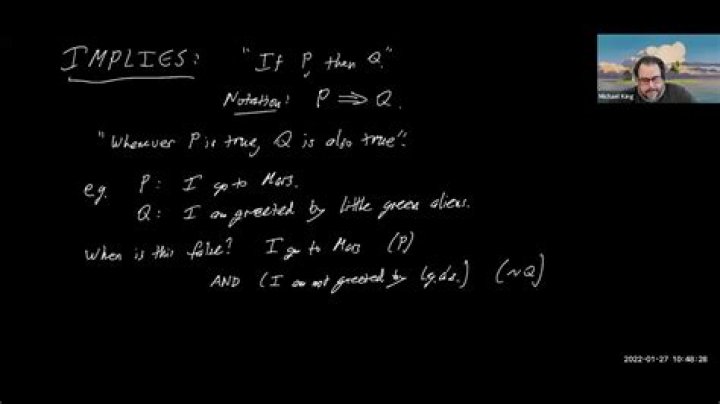 IMPLIES: "If P, then Q."
Notation: P ⇒ Q.
"Whenever P is true, Q is also true".
e.g. P: I go to Mars.
Q: I am greeted by little green aliens.
When is this false? I go to Mars (P)
AND (I am not greeted by l.g.a's.) (~Q)
Michael King
2022-01-27 10:48:28